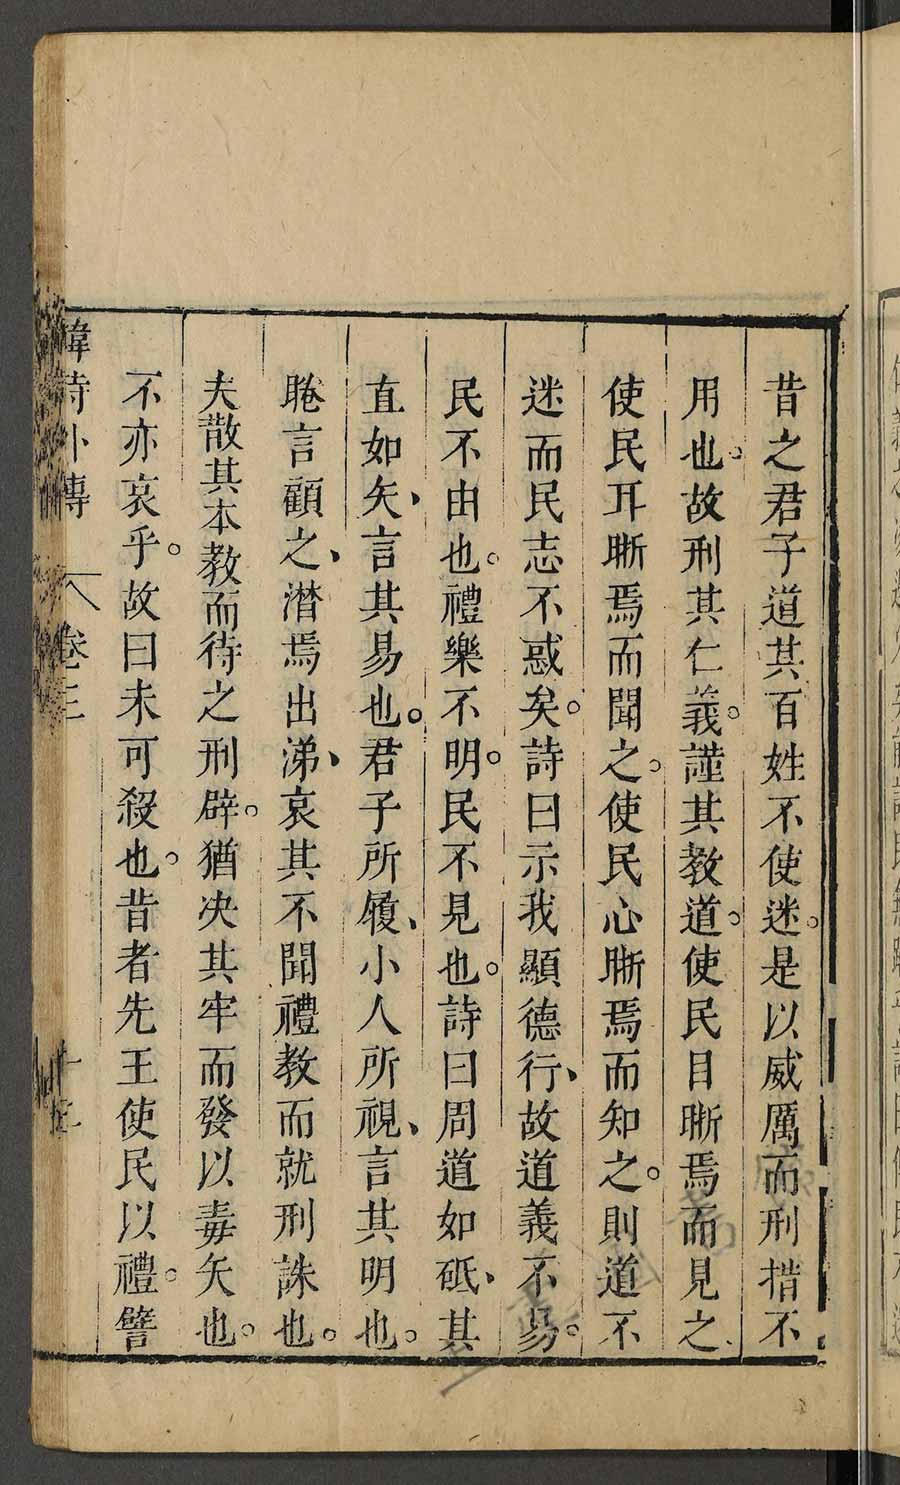 昔之君子道其百姓不使迷。是以威厲而刑措不
用也。故刑其仁義。謹其教道。使民目晣焉而見之、
使民耳晣焉而聞之。使民心晣焉而知之。則道不
迷而民志不惑矣。詩曰示我顯德行、故道義不易。
民不由也。禮樂不明。民不見也。詩曰周道如砥、其
直如矢、言其易也。君子所履、小人所視、言其明也。
睠言顧之、潸焉出涕、哀其不聞禮教而就刑誅也。
夫散其本教而待之刑辟。猶決其牢而發以毒矢也。
不亦哀乎。故曰未可殺也。昔者先王使民以禮。譬
韓詩外傳 卷三